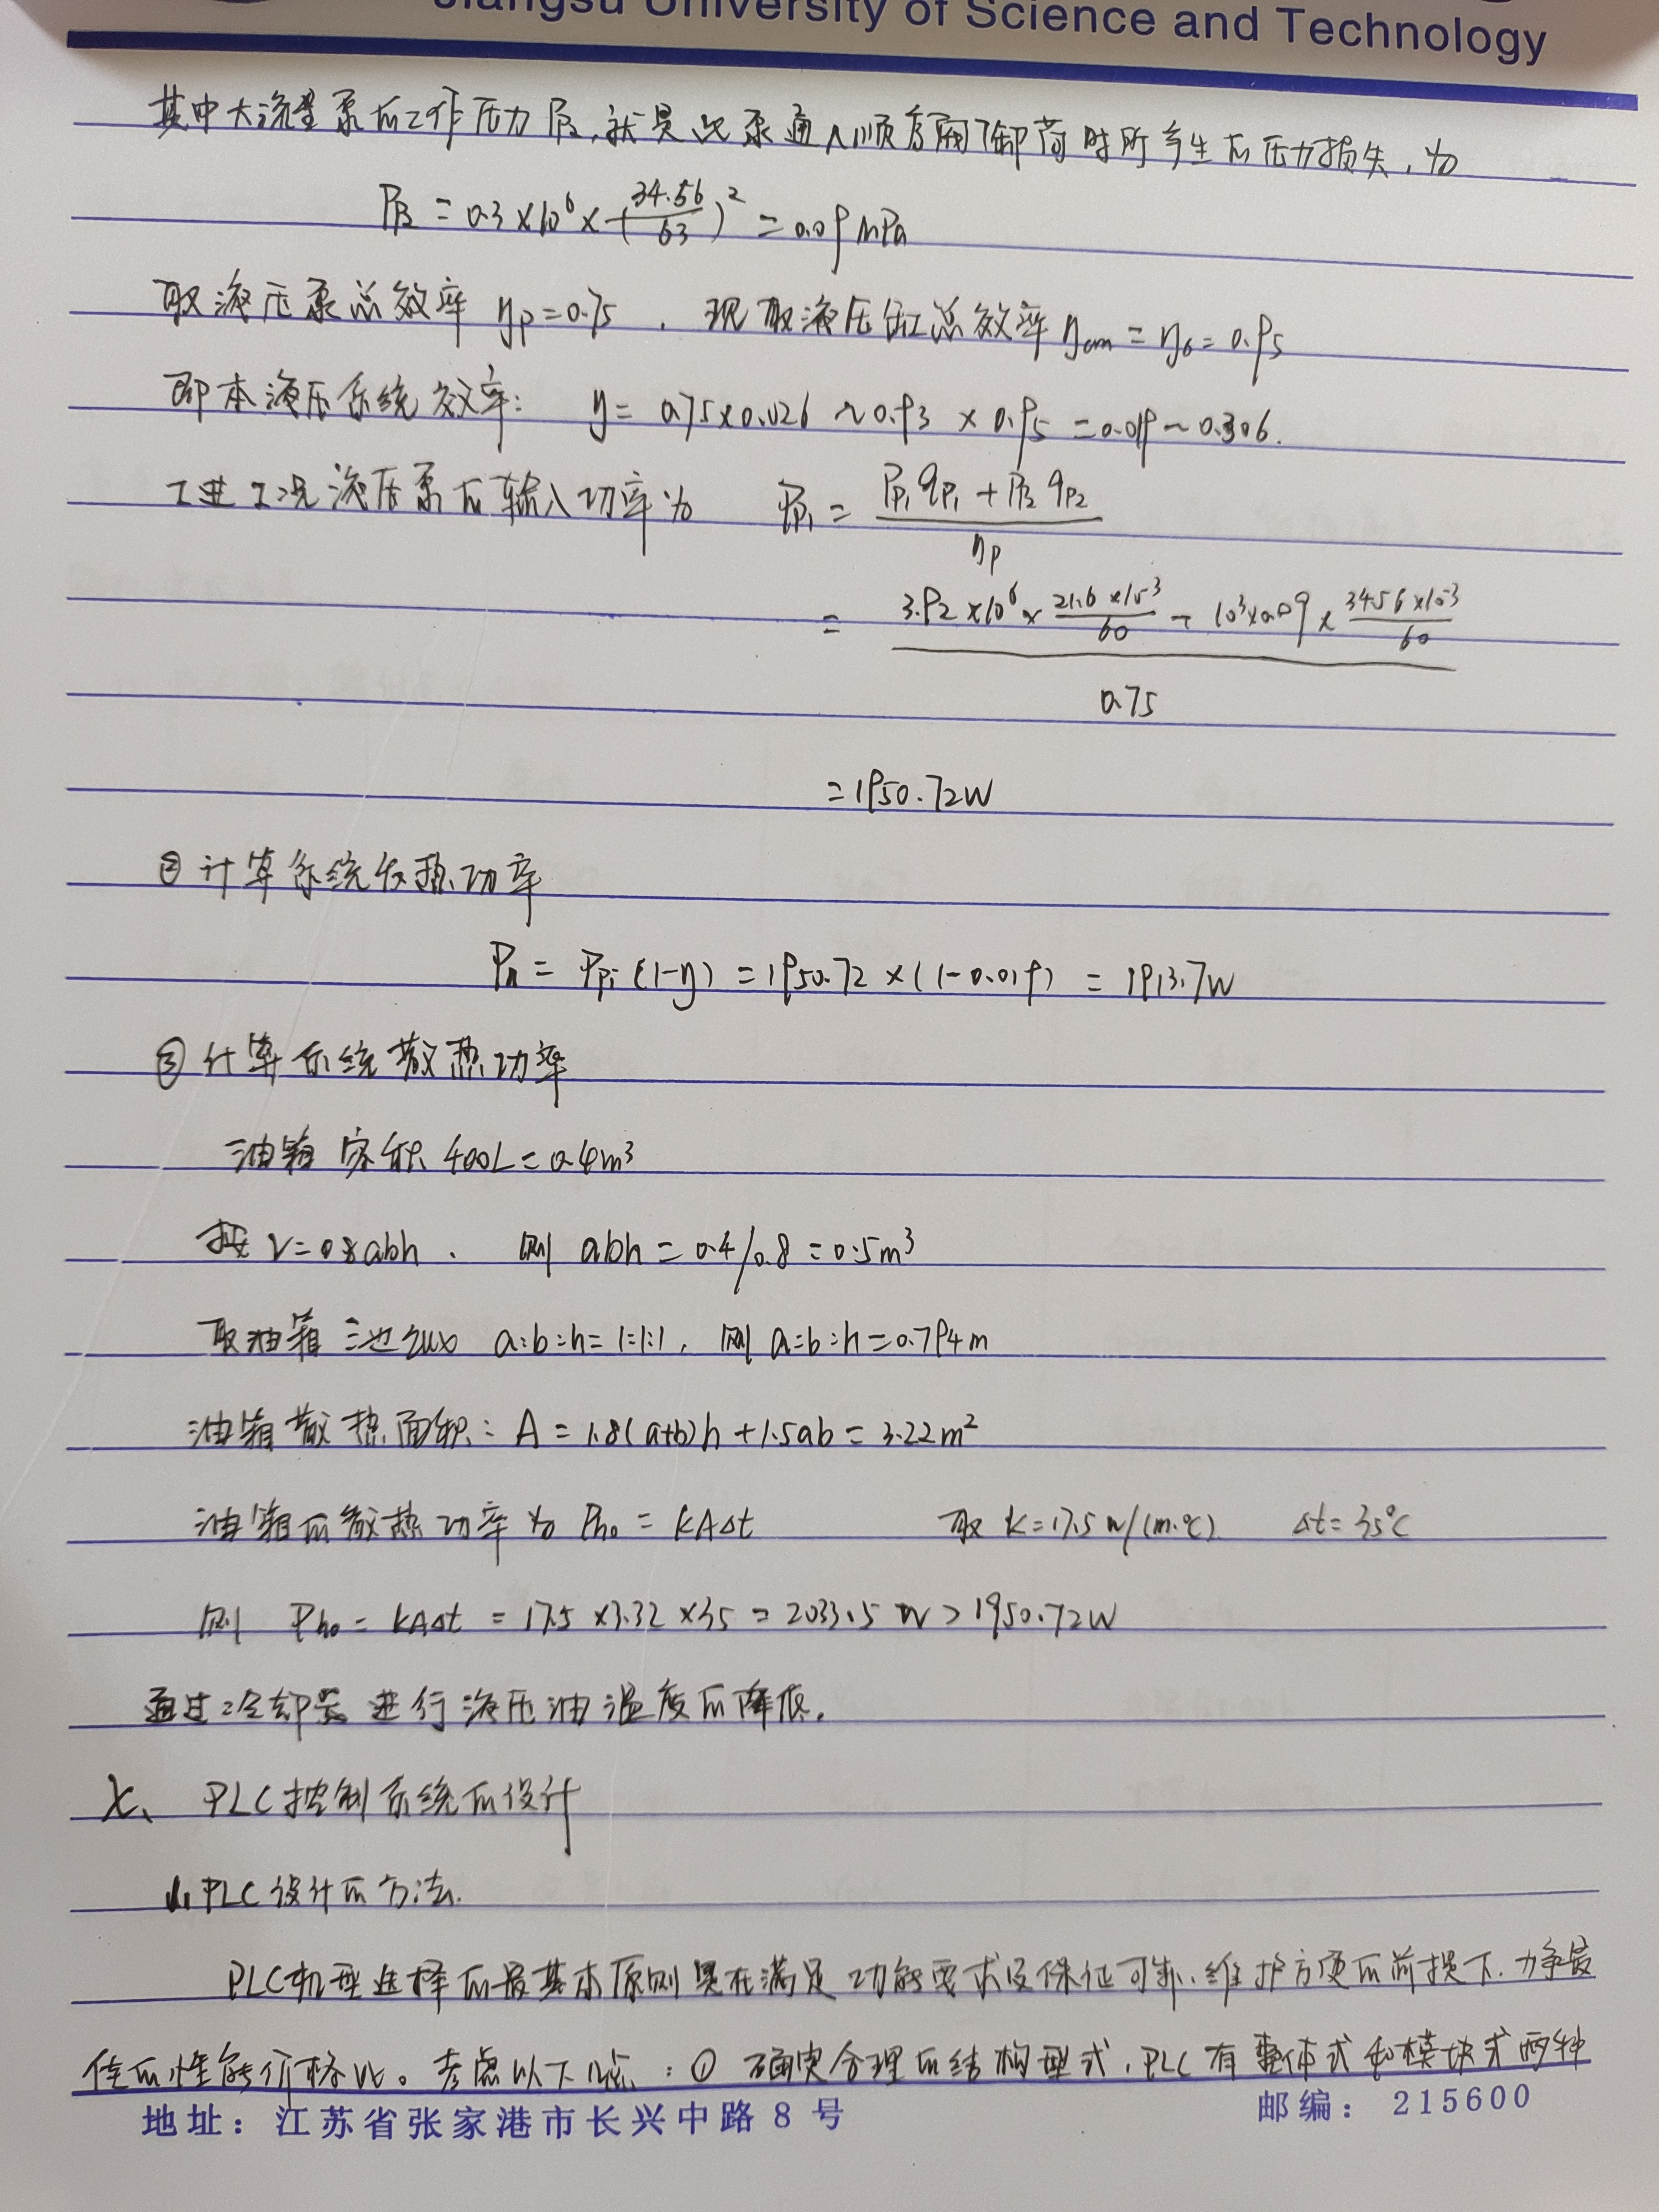 Jiangsu University of Science and Technology
其中大流量泵的工作压力Pp2,就是此泵通入顺序阀卸荷时所产生的压力损失,为
Pp2 = 0.3×10^6×(34.56/63)^2 = 0.09MPa
取液压泵总效率 ηp=0.75 , 现取液压缸总效率ηcm = η6 = 0.95
即本液压系统效率: η = 0.75×0.026~0.43 × 0.95 = 0.019~0.306.
工进工况液压泵的输入功率为 Pp1 = (Pp1 qp1 + Pp2 qp2)/ηp
= (3.92×10^6×(21.6×10^-3/60) + 10^3×0.09×(34.56×10^-3/60))/0.75
=1950.72W
②计算系统发热功率
Ph = Ppi (1-η) = 1950.72×(1-0.019) = 1913.7W
③计算系统散热功率
油箱容积 400L=0.4m³
按 V=0.8abh . 则 abh = 0.4/0.8 = 0.5m³
取油箱三边之比 a:b:h=1:1:1, 则 a=b=h=0.794m
油箱散热面积: A = 1.8(a+b)h+1.5ab = 3.22m²
油箱的散热功率为 Pho = KAΔt 取 K=17.5 W/(m·℃) Δt=35℃
则 Pho = KAΔt = 17.5×3.32×35 = 2033.5 W > 1950.72W
通过冷却器进行液压油温度的降低.
PLC控制系统的设计
1. PLC设计的方法.
PLC机型选择的最基本原则是在满足功能要求及保证可靠、维护方便的前提下.力争最
佳的性能价格比。考虑以下几点:① 确定合理的结构型式,PLC有整体式和模块式两种
地址:江苏省张家港市长兴中路8号 邮编:215600